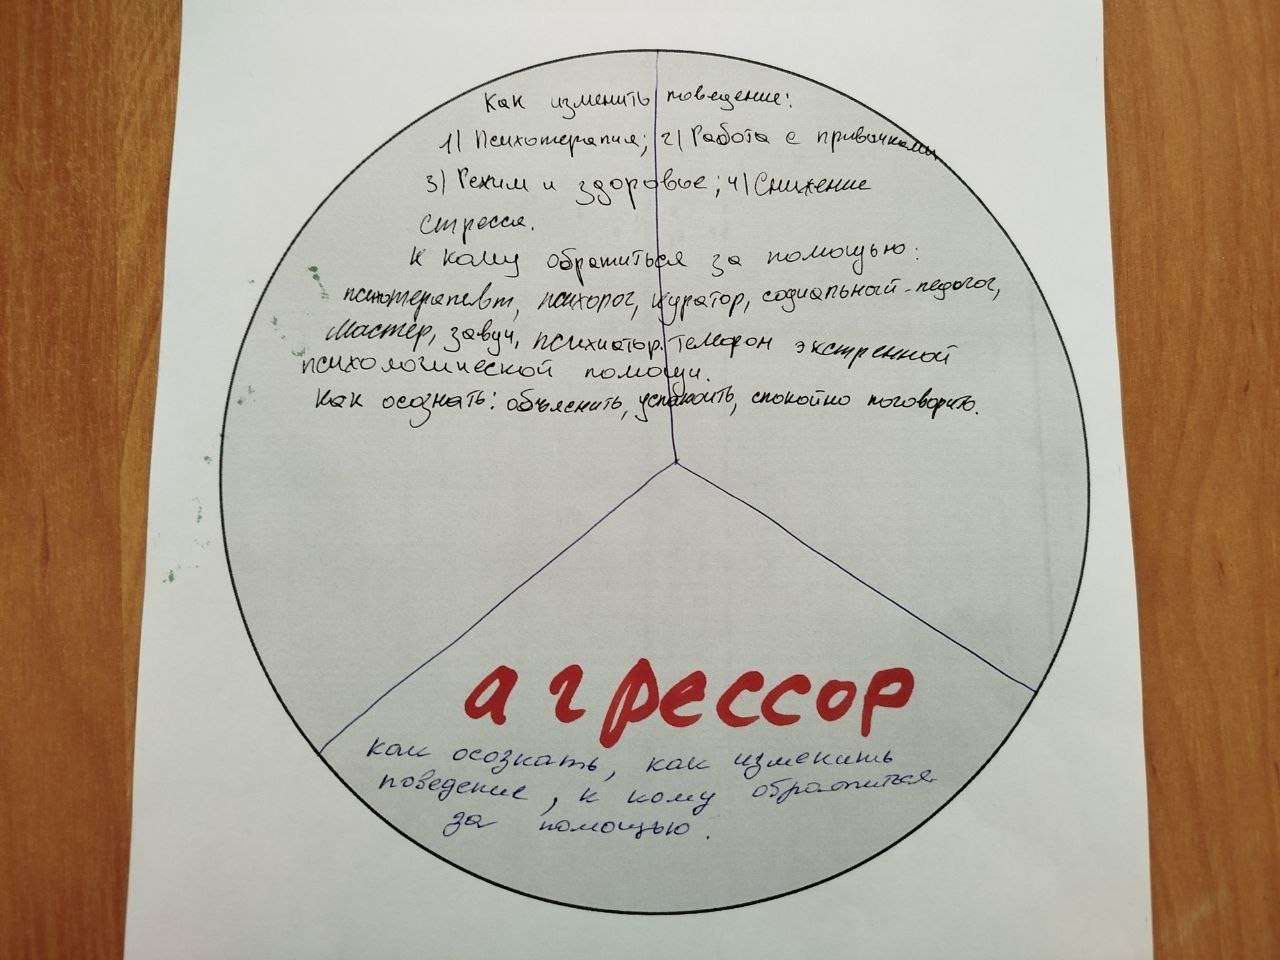 Как изменить поведение:
1) Психотерапия; 2) Работа с привычками
3) Режим и здоровье; 4) Снижение
стресса.
К кому обратиться за помощью:
психотерапевт, психолог, куратор, социальный-педагог,
мастер, завуч, психиатор. Телефон экстренной
психологической помощи.
Как осознать: объяснить, успокоить, спокойно поговорить.
агрессор
как осознать, как изменить
поведение, к кому обратиться
за помощью.